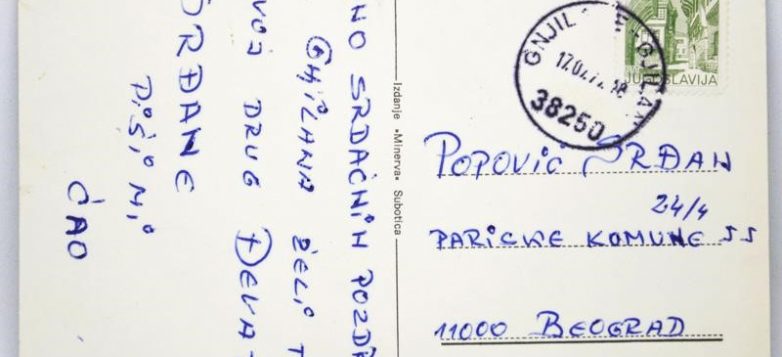 NO SRDAČNIH POZDR
GNJILANA ŽELI T
VOJ DRUG ĐEVA-
RĐANE
PIŠI MI
ĆAO
Izdanje »Minerva« Subotica
GNJIL
38250
JUGOSLAVIJA
POPOVIĆ SRĐAN
24/4
PARISKE KOMUNE 55
11000 BEOGRAD